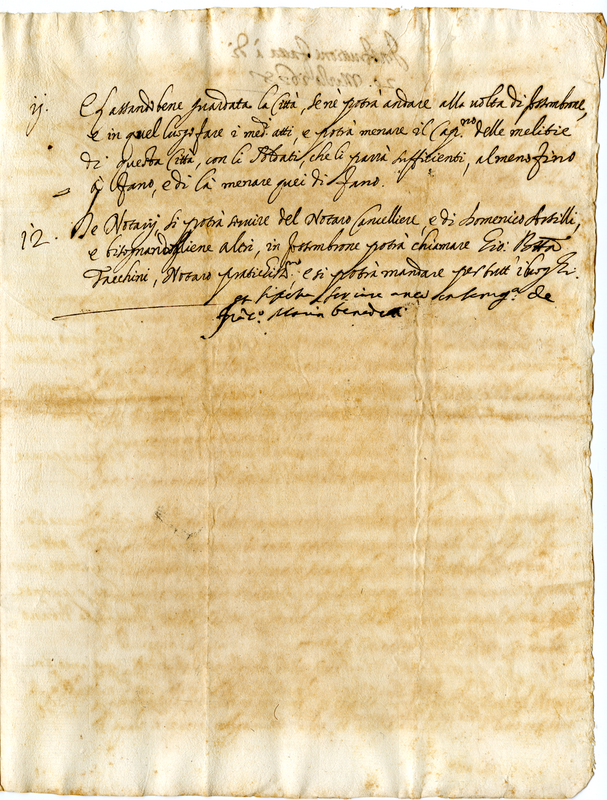 ij. E lassando bene guardata la Città, se nè potrà andare alla volta di fossombrone,
e in quel luogo fare i med.i atti e potrà menare il Cap.no delle melitie
di questa Città, con li Soldati, che li parrà sufficienti, almeno fino
à Fano, e di là menare quei di Fano.
12. De Notarij, si potrà servire del Notaro Cancelliere e di Domenico
e bisognandogliene altri, in fossombrone potrà chiamare Gio: Batta
Tacchini, Notaro e si potrà mandare per tutt' i luoghi.
servire anco de
Maria